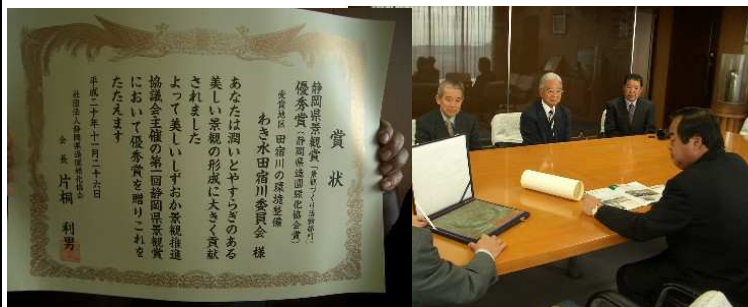 賞状
静岡県景観賞「景観づくり活動部門」
優秀賞(静岡県造園緑化協会賞)
受賞地区 田宿川の環境整備
わき水田宿川委員会 様
あなたは潤いとやすらぎのある
美しい景観の形成に大きく貢献
されました
よって美しいしずおか景観推進
協議会主催の第一回静岡県景観賞
において優秀賞を贈りこれを
たたえます
平成二十年十一月二十六日
社団法人静岡県造園緑化協会
会長 片桐 利男